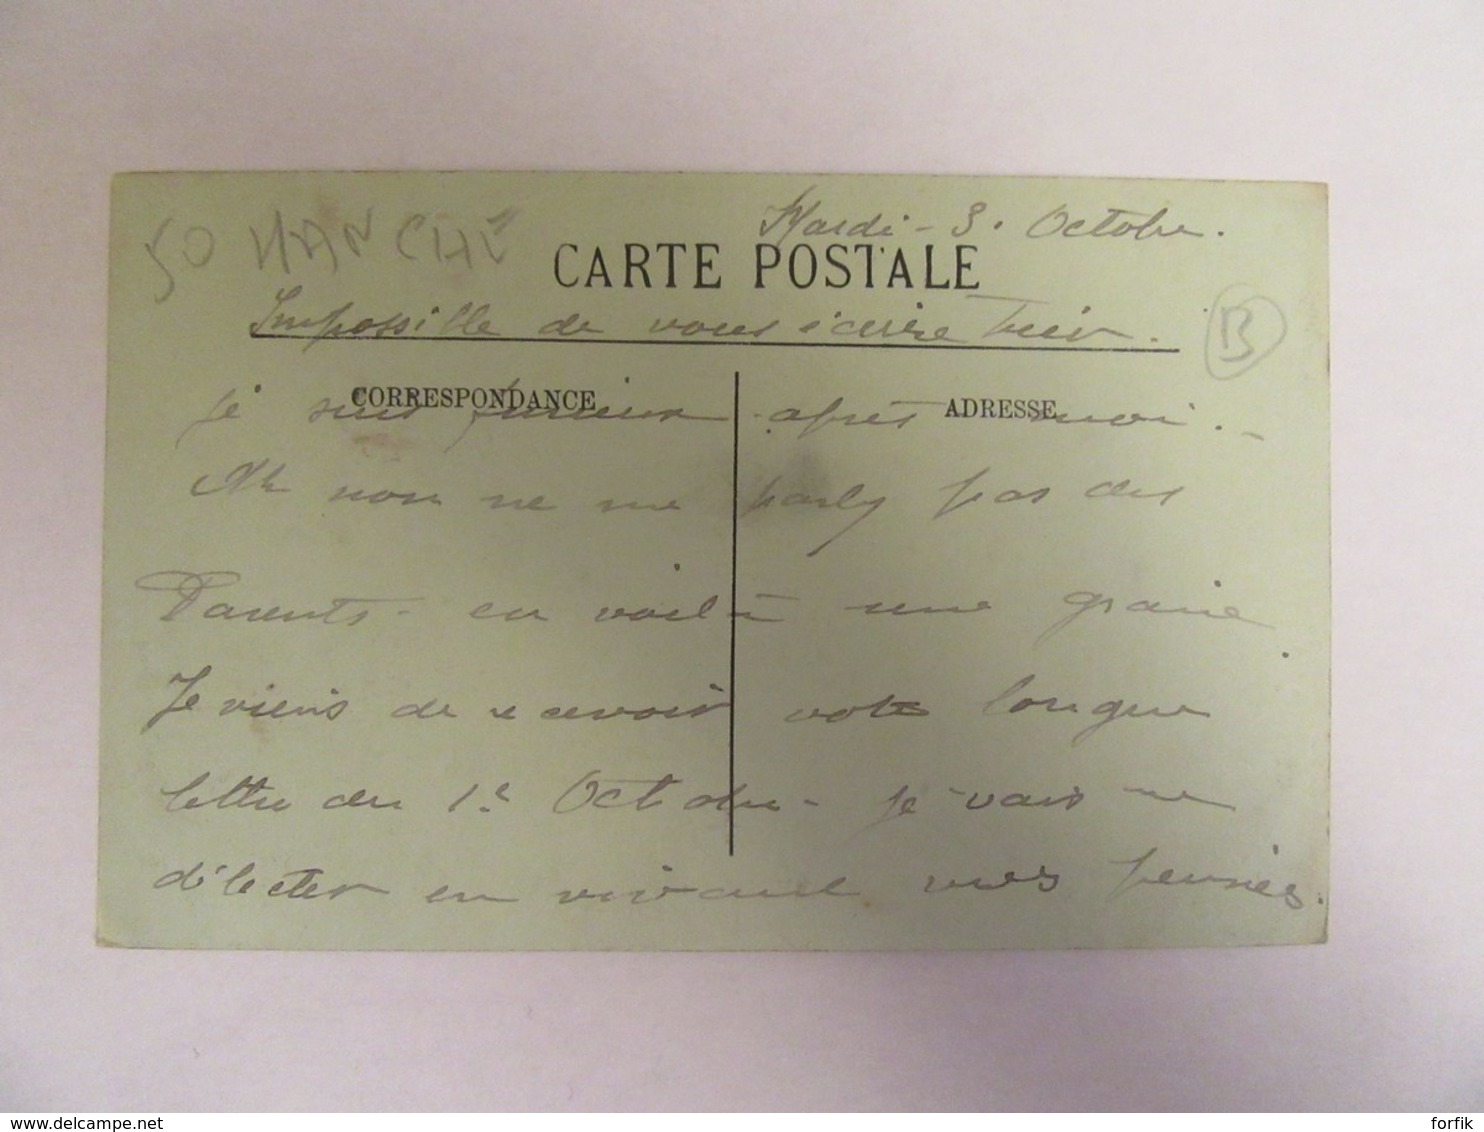 Mardi - 3. Octobre.
50 MANCHE
CARTE POSTALE
Impossible de vous écrire hier.
B
CORRESPONDANCE
ADRESSE
je suis furieux après moi. -
Ah non ne me parlez pas des
Parents - en voilà une graine.
Je viens de recevoir votre longue
lettre du 1er Octobre - je vais me
délecter en vivant vos pensées.
delcampe.net
forfik